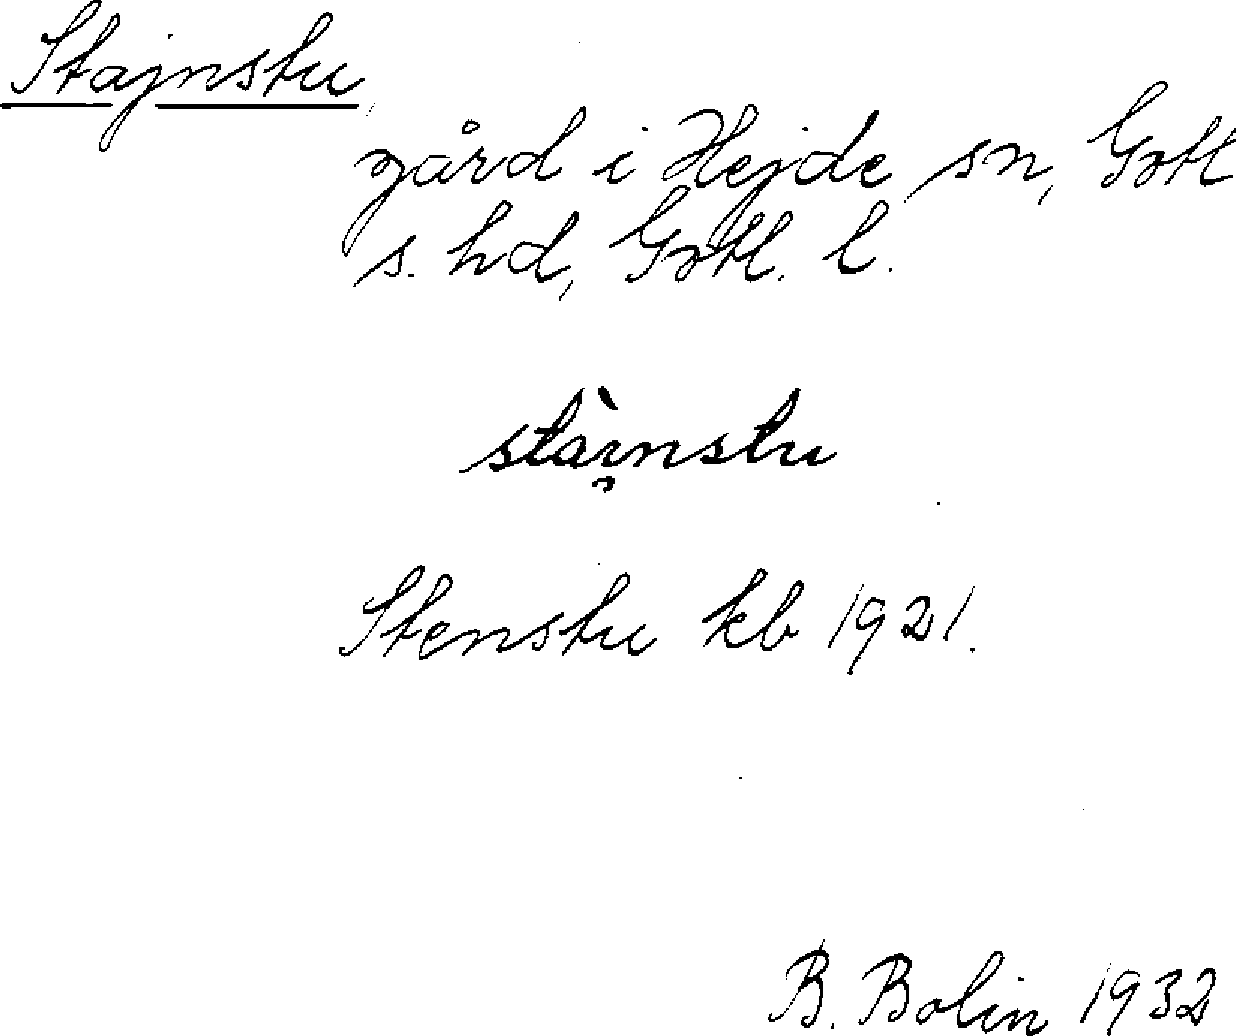 Stajnstu
gård i Hejde sn, Gotl
s. hd, Gotl. l.
stàı̯nstu
Stenstu kb 1921.
B. Bolin 1932